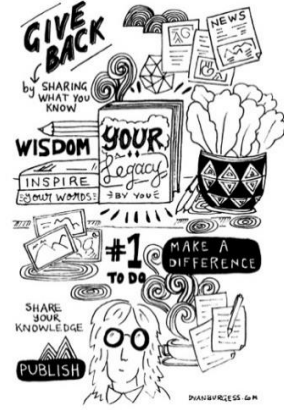 GIVE
BACK
by SHARING
WHAT YOU
KNOW
NEWS
WISDOM
INSPIRE
Your WORDS
YOUR
Legacy
BY YOU
#1
TO DO
MAKE A
DIFFERENCE
SHARE
YOUR
KNOWLEDGE
PUBLISH